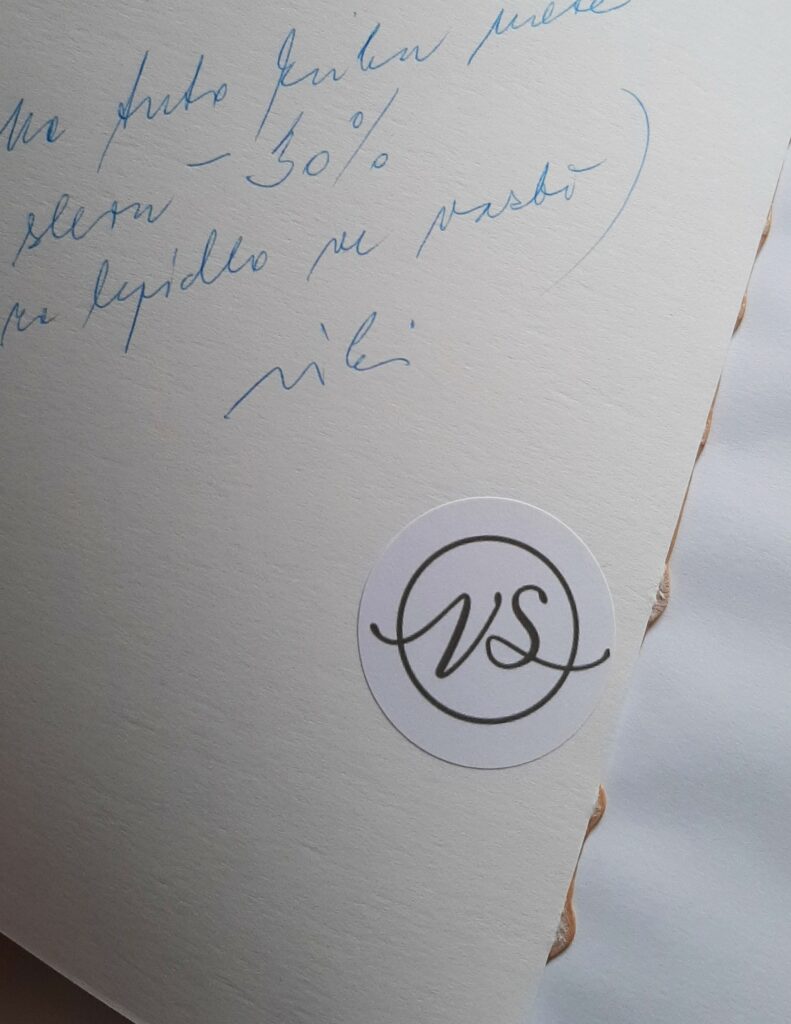 Na tuto knihu máte
slevu - 30%
za lepidlo ve vazbě)
Viki
VS